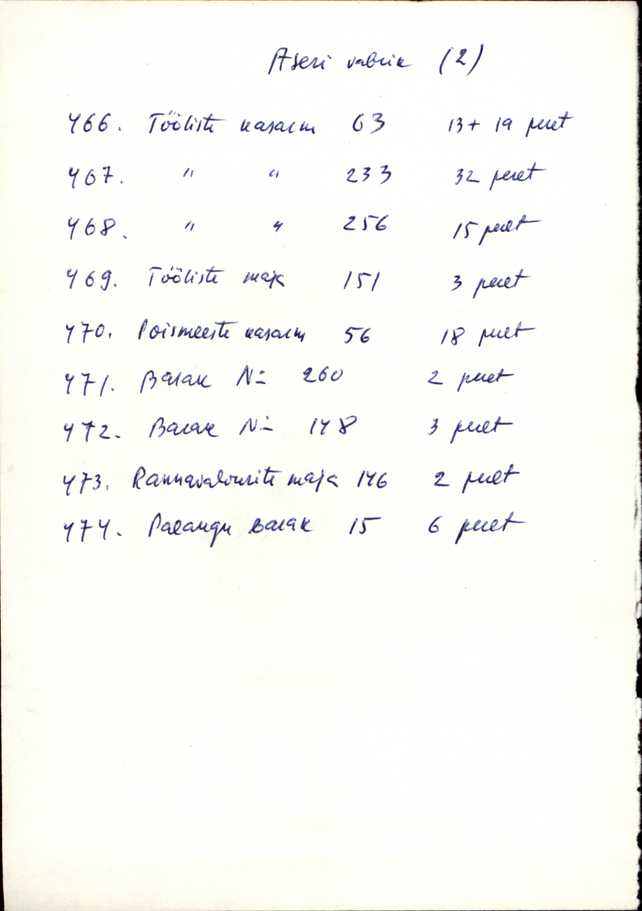 Aseri vabrik (2)
466. Tööliste kasarm 63 13 + 19 peret
467. " " 233 32 peret
468. " " 256 15 peret
469. Tööliste maja 151 3 peret
470. Poismeeste kasarm 56 18 peret
471. Barak N= 260 2 peret
472. Barak N= 148 3 peret
473. Rannavalvurite maja 146 2 peret
474. Parangu barak 15 6 peret